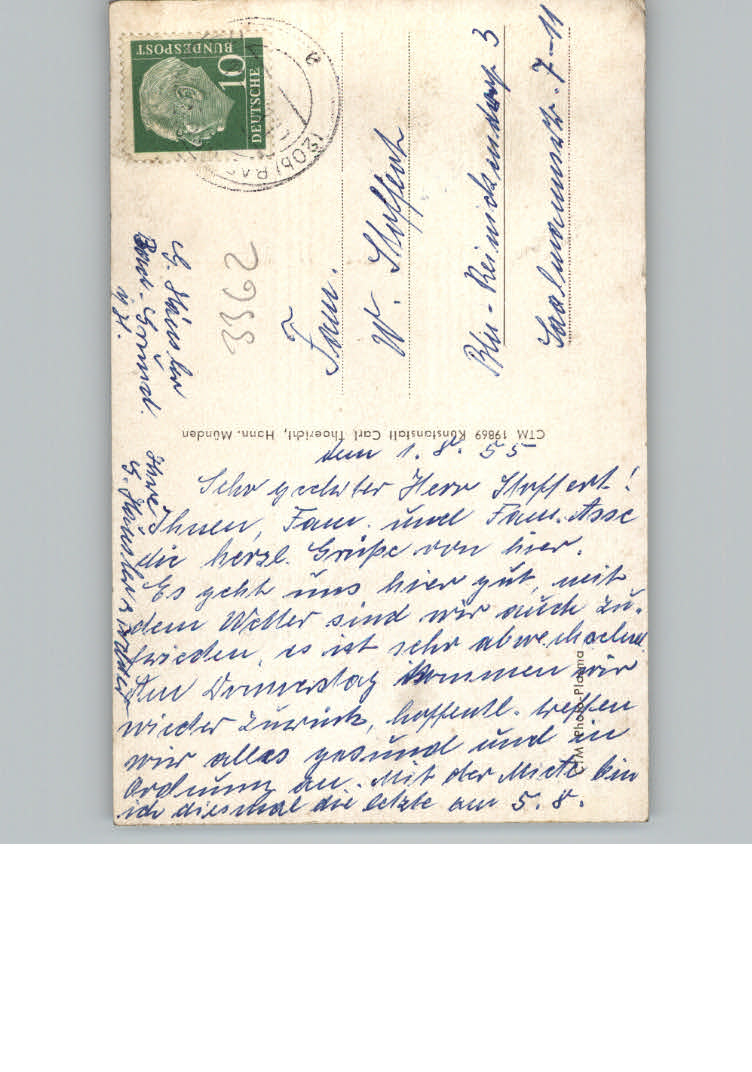 DEUTSCHE
BUNDESPOST
10
G. Häusler
Bad-Grund
i/H.
2933
Fam.
W. Stoffert
Bln-Reinickendorf 3
Saalmannstr. 7-11
CTM 19869 Kunstanstalt Carl Thoericht, Hann.-Münden
CTM Photo-Plasma
den 1.8.55
Sehr geehrter Herr Stoffert!
Ihnen, Fam. und Fam. Asse
die herzl. Grüße von hier.
Es geht uns hier gut, mit
dem Wetter sind wir auch zu-
frieden, es ist sehr abwechselnd
Am Donnerstag kommen wir
wieder zurück, hoffentl. treffen
wir alles gesund und in
Ordnung an. Mit der Miete bin
ich diesmal die letzte am 5.8.
Ihre
G. Häusler